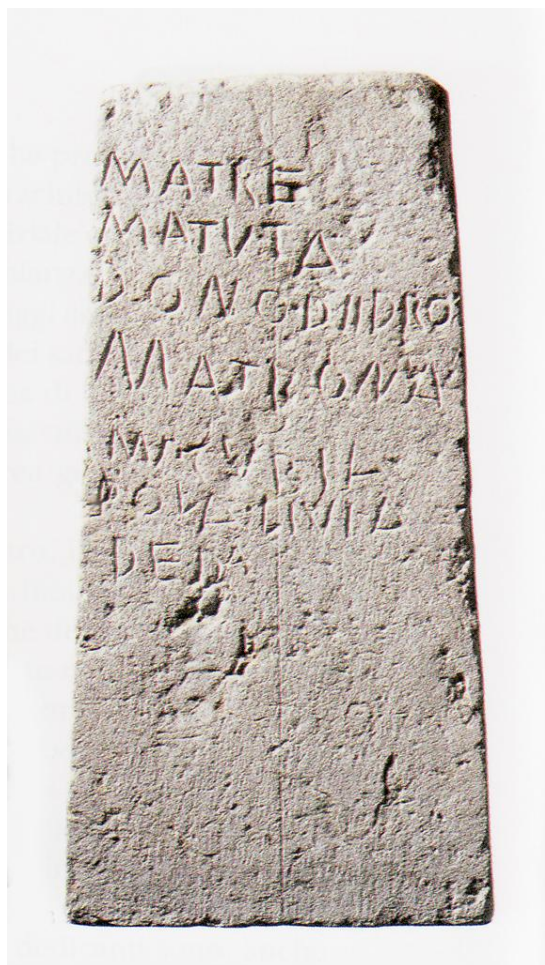 MATRE
MATVTA
DONO·DIIDRO
MATRONA
M·CVRIA
POLA·LIVIA
DEDA